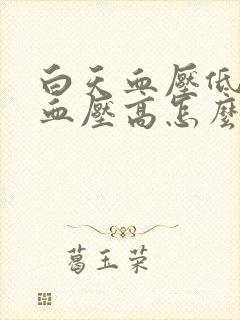 白天血壓低
血壓高怎麼
葛玉荣